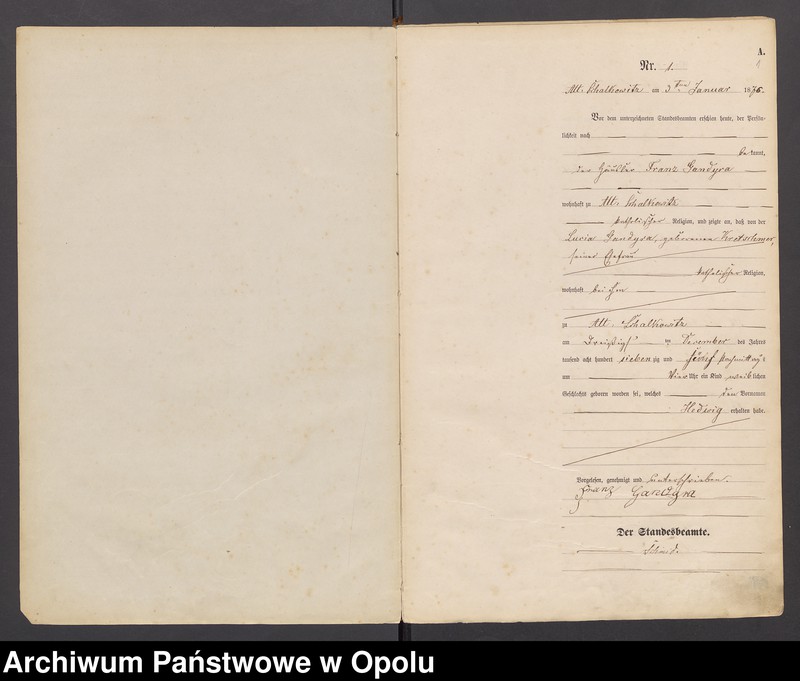 A.
1
Nr. 1.
Alt-Schalkowitz am 3ten Januar 1876.
Vor dem unterzeichneten Standesbeamten erschien heute, der Persön-
lichkeit nach
bekannt,
der Häusler Franz Gandyra
wohnhaft zu Alt-Schalkowitz
katholischer Religion, und zeigte an, daß von der
Lucia Gandyra, geborenen Kretschmer,
seiner Ehefrau
katholischer Religion,
wohnhaft bei ihm
zu Alt-Schalkowitz
am Dreißigst ten December des Jahres
tausend acht hundert siebenzig und fünf Nachmittags
um Vier Uhr ein Kind weiblichen
Geschlechts geboren worden sei, welches den Vornamen
Hedwig erhalten habe.
Vorgelesen, genehmigt und unterschrieben.
Franz Gandyra
Der Standesbeamte.
Archiwum Państwowe w Opolu